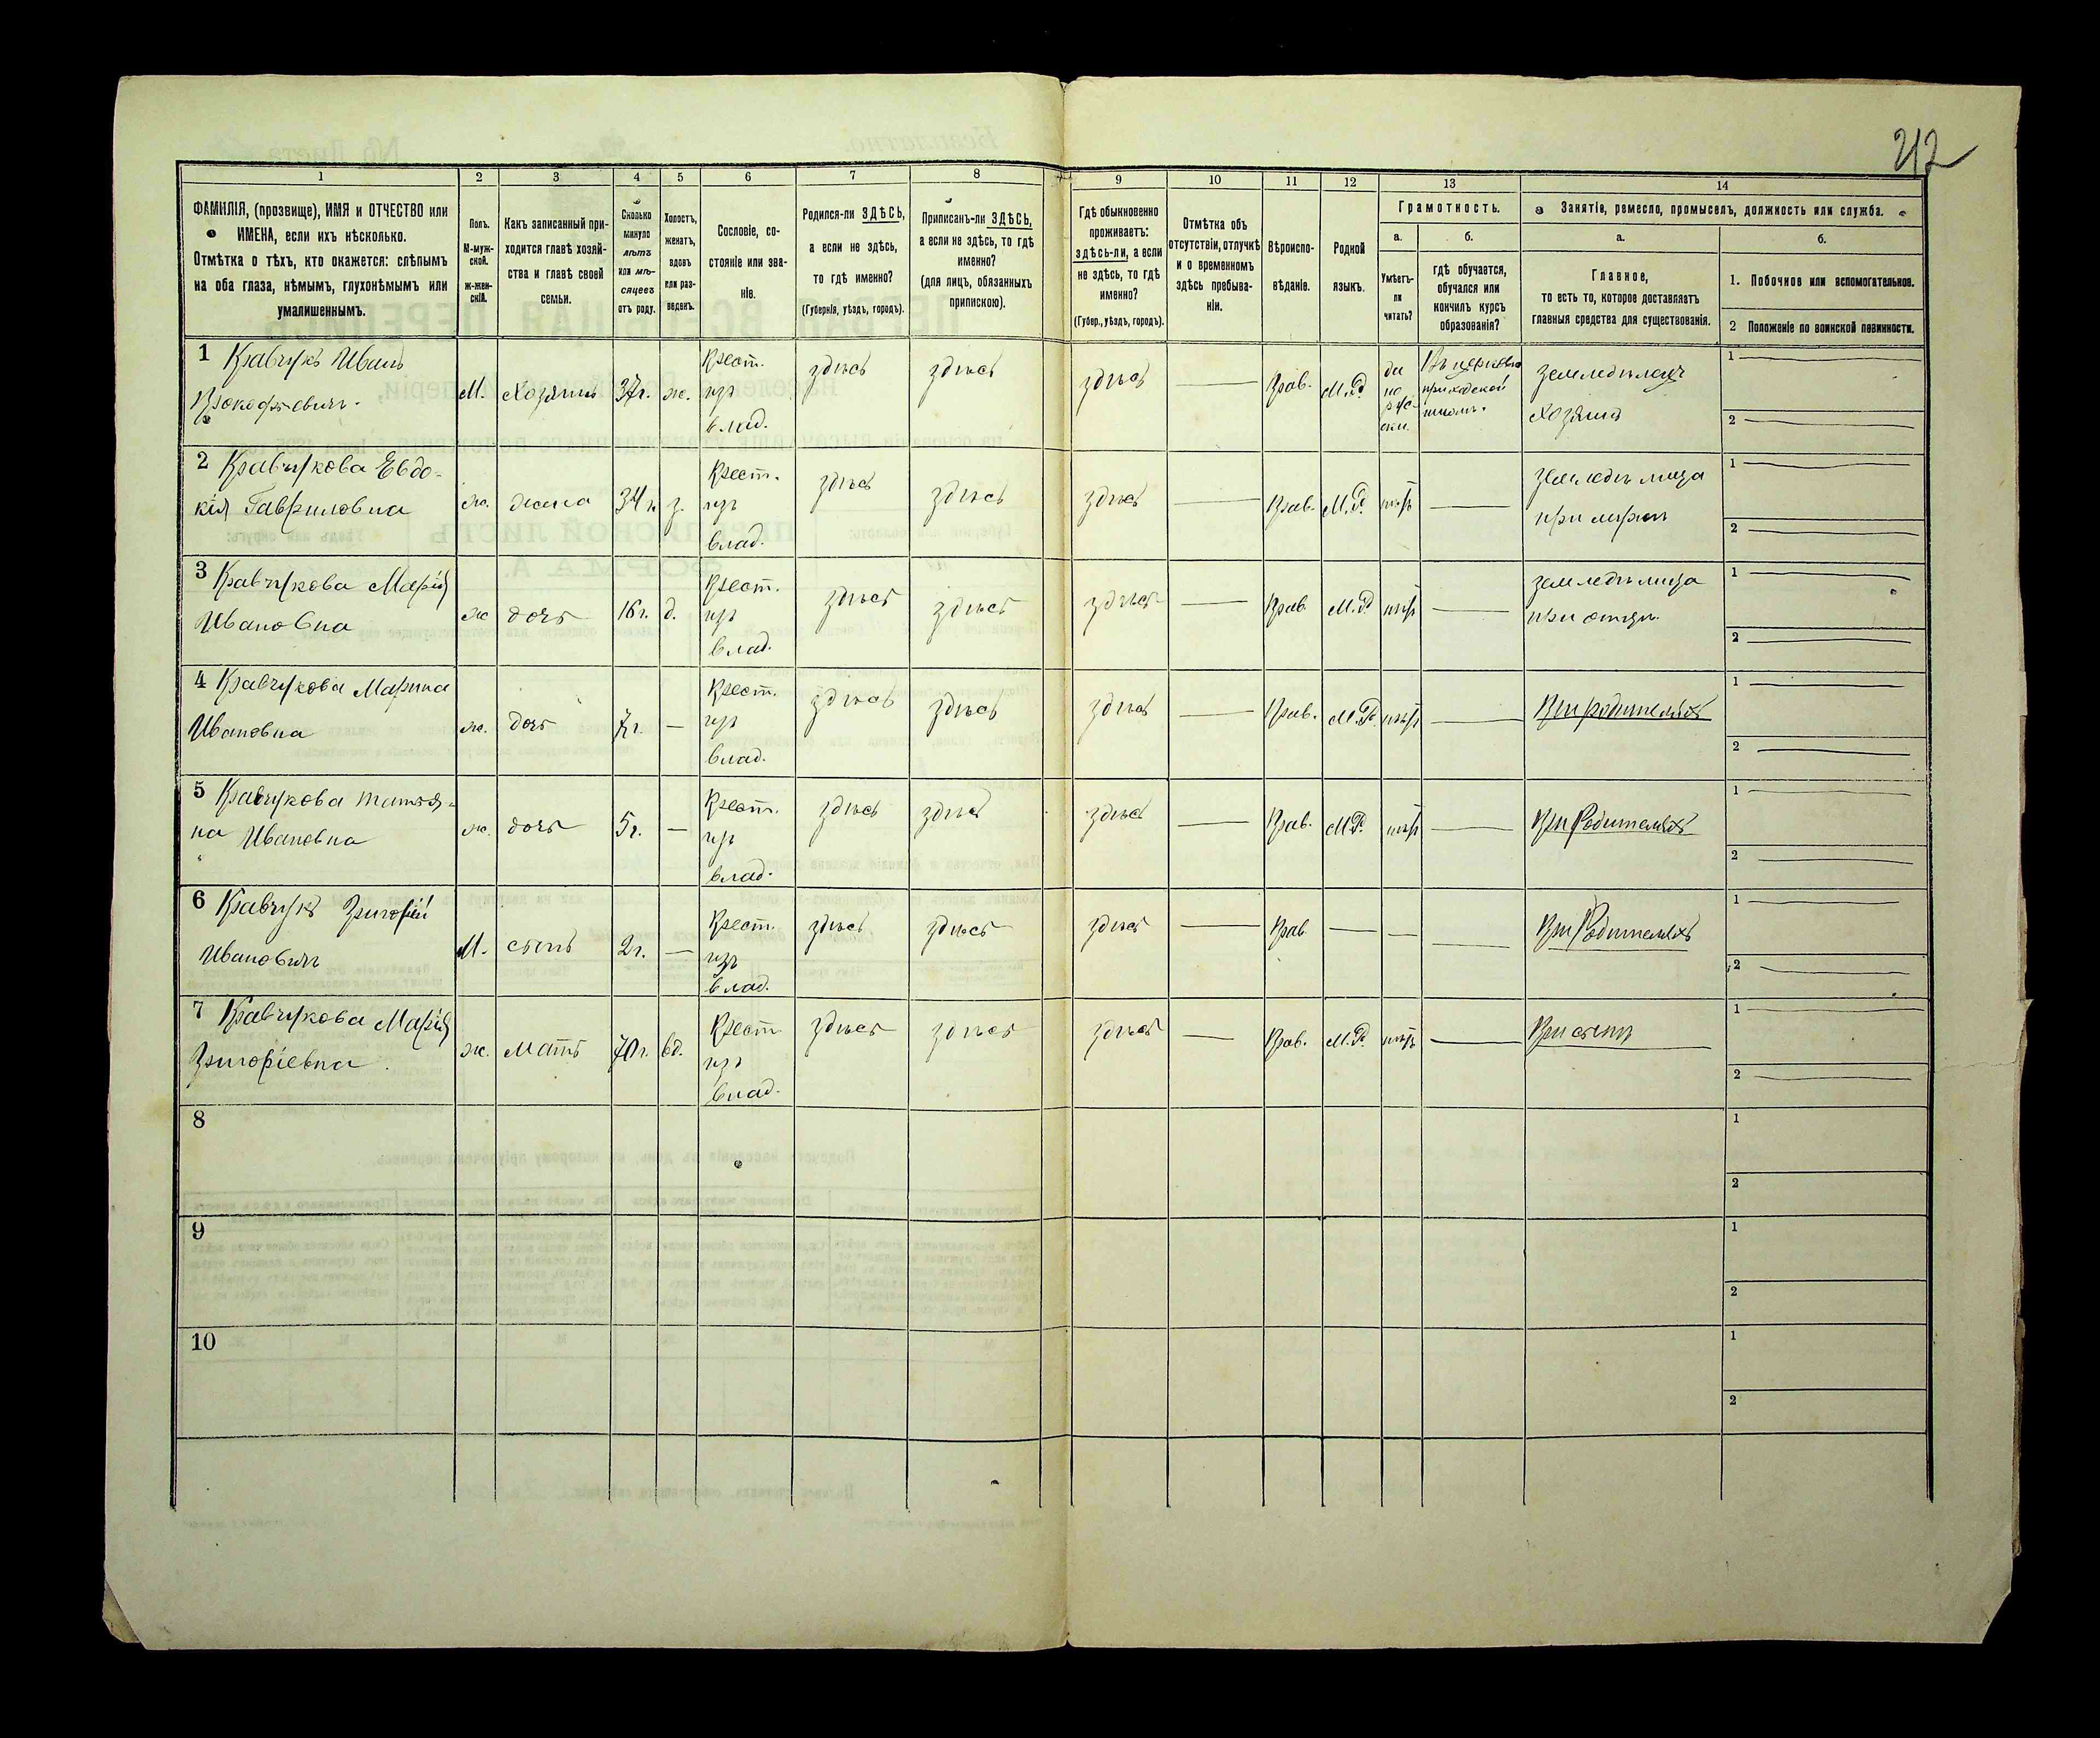 212
1 2 3 4 5 6 7 8 9 10 11 12 13 14
ФАМИЛІЯ, (прозвище), ИМЯ и ОТЧЕСТВО или
ИМЕНА, если ихъ нѣсколько.
Отмѣтка о тѣхъ, кто окажется: слѣпымъ
на оба глаза, нѣмымъ, глухонѣмымъ или
умалишеннымъ.
Полъ.
М-муж-
ской.
Ж-жен-
скій.
Какъ записанный при-
ходится главѣ хозяй-
ства и главѣ своей
семьи.
Сколько
минуло
лѣтъ
или мѣ-
сяцевъ
отъ роду.
Холостъ,
женатъ,
вдовъ
или раз-
веденъ.
Сословіе, со-
стояніе или зва-
ніе.
Родился-ли ЗДѢСЬ,
а если не здѣсь,
то гдѣ именно?
(Губернія, уѣздъ, городъ).
Приписанъ-ли ЗДѢСЬ,
а если не здѣсь, то гдѣ
именно?
(для лицъ, обязанныхъ
припискою).
Гдѣ обыкновенно
проживаетъ:
здѣсь-ли, а если
не здѣсь, то гдѣ
именно?
(Губер., уѣздъ, городъ).
Отмѣтка объ
отсутствіи, отлучкѣ
и о временномъ
здѣсь пребыва-
ніи.
Вѣроиспо-
вѣданіе.
Родной
языкъ.
Грамотность.
а.
Умѣетъ-
ли
читать?
б.
гдѣ обучается,
обучался или
кончилъ курсъ
образованія?
Занятіе, ремесло, промыселъ, должность или служба.
а.
Главное,
то есть то, которое доставляетъ
главныя средства для существованія.
б.
1. Побочное или вспомогательное.
2 Положеніе по воинской повинности.
1 Кравчукъ Иванъ
Прокофьевичъ.
М. Хозяинъ 37 г. ж.
Крест.
изъ
влад.
здѣсь здѣсь здѣсь — Прав. М.Р.
да
по
рус-
ски
Въ церковно
приходской
школѣ.
земледѣлецъ
хозяинъ
1 —
2 —
2 Кравчукова Евдо-
кія Гавриловна
ж. жена 34 г. з.
Крест.
изъ
влад.
здѣсь здѣсь здѣсь — Прав. М.Р. нѣтъ —
земледѣлица
при мужѣ
1 —
2 —
3 Кравчукова Марія
Ивановна
ж дочь 16 г. д.
Крест.
изъ
влад.
здѣсь здѣсь здѣсь — Прав. М.Р. нѣтъ —
земледѣлица
при отцѣ.
1 —
2 —
4 Кравчукова Марина
Ивановна
ж. дочь 7 г. —
Крест.
изъ
влад.
здѣсь здѣсь здѣсь — Прав. М.Р. нѣтъ —
При родителяхъ
1 —
2 —
5 Кравчукова Татья-
на Ивановна
ж. дочь 5 г. —
Крест.
изъ
влад.
здѣсь здѣсь здѣсь — Прав. М.Р. нѣтъ —
При Родителяхъ
1 —
2 —
6 Кравчукъ Григорій
Ивановичъ
М. сынъ 2 г. —
Крест.
изъ
влад.
здѣсь здѣсь здѣсь — Прав — — —
При Родителяхъ
1 —
2 —
7 Кравчукова Марія
Григоріевна
ж. Мать 70 г. вд.
Крест
изъ
влад.
здѣсь здѣсь здѣсь — Прав. М.Р. нѣтъ —
При сынѣ
1 —
2 —
8
1
2
9
1
2
10
1
2